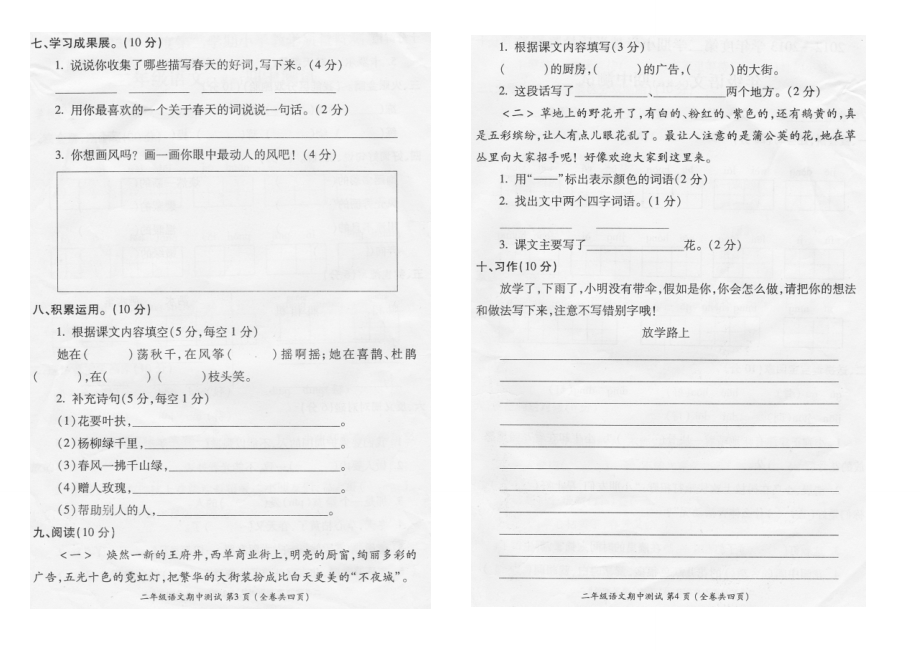 七、学习成果展。(10 分)
1. 说说你收集了哪些描写春天的好词,写下来。(4 分)
2. 用你最喜欢的一个关于春天的词说说一句话。(2 分)
3. 你想画风吗? 画一画你眼中最动人的风吧! (4 分)
八、积累运用。(10 分)
1. 根据课文内容填空(5 分,每空 1 分)
她在(　　)荡秋千,在风筝(　　)摇啊摇;她在喜鹊、杜鹃
(　　),在(　　)(　　)枝头笑。
2. 补充诗句(5 分,每空 1 分)
(1)花要叶扶,。
(2)杨柳绿千里,。
(3)春风一拂千山绿,。
(4)赠人玫瑰,。
(5)帮助别人的人,。
九、阅读(10 分)
<一> 焕然一新的王府井,西单商业街上,明亮的厨窗,绚丽多彩的
广告,五光十色的霓虹灯,把繁华的大街装扮成比白天更美的“不夜城”。
二年级语文期中测试 第3 页(全卷共四页)
1. 根据课文内容填写(3 分)
(　　)的厨房,(　　)的广告,(　　)的大街。
2. 这段话写了、两个地方。(2 分)
<二> 草地上的野花开了,有白的、粉红的、紫色的,还有鹅黄的,真
是五彩缤纷,让人有点儿眼花乱了。最让人注意的是蒲公英的花,她在草
丛里向大家招手呢! 好像欢迎大家到这里来。
1. 用“——”标出表示颜色的词语(2 分)
2. 找出文中两个四字词语。(1 分)
3. 课文主要写了花。(2 分)
十、习作(10 分)
放学了,下雨了,小明没有带伞,假如是你,你会怎么做,请把你的想法
和做法写下来,注意不写错别字哦!
放学路上
二年级语文期中测试 第4 页(全卷共四页)